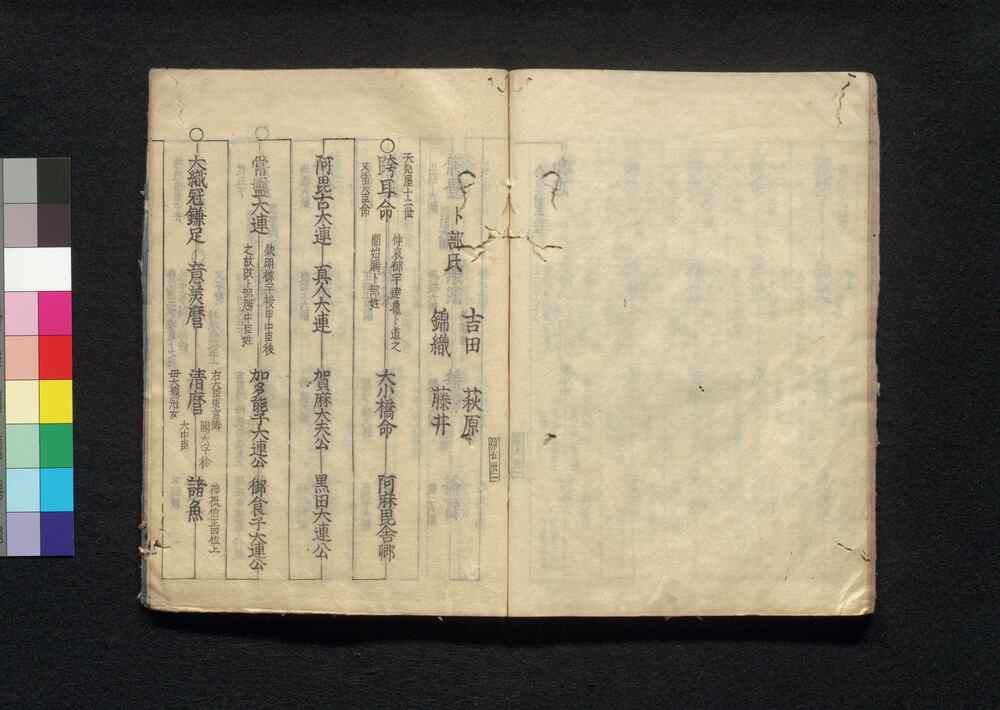 卜部氏
吉田 萩原
錦織 藤井
天児屋十二世
跨耳命
又雷大臣命
仲哀御宇達亀卜道之
間始賜卜部姓
大小橋命
阿麻毘舎卿
阿毘古大連
真人大連
賀麻大夫公
黒田大連公
常盤大連
欽明御宇授甲中臣後
之故改卜部賜中臣姓
加多能子大連公
御食子大連公
大織冠鎌足
意美麿
清麿
右大臣
大中臣
諸魚
正四位上